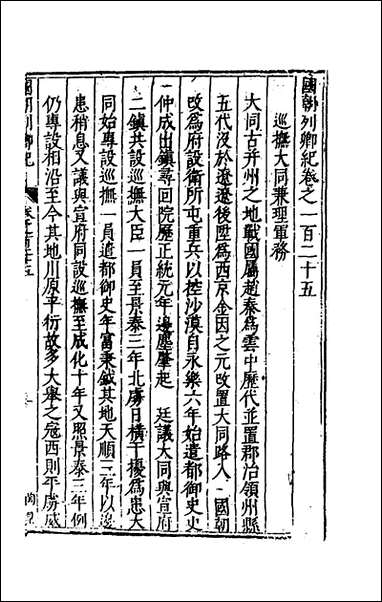 國朝列卿紀卷之一百二十五
巡撫大同兼理軍務
大同古并州之地戰國屬趙秦爲雲中歷代並置郡冶領州縣
五代沒於遼遼後陞爲西京金因之元改置大同路入 國朝
改爲府設衛所屯重兵以控沙漠自永樂六年始遣都御史史
仲成出鎮尋回院歷正統元年邊塵肇起 廷議大同與宣府
二鎮共設巡撫大臣一員至景泰三年北虜日橫干擾爲患大
同始專設巡撫一員遣都御史年富秉鉞其地天順三年以邊
患稍息又議與宣府同設巡撫至成化十年又照景泰三年例
仍專設相沿至今其地川原平衍故多大舉之寇西則平虜威
國朝列卿紀 卷之一百二十五 一